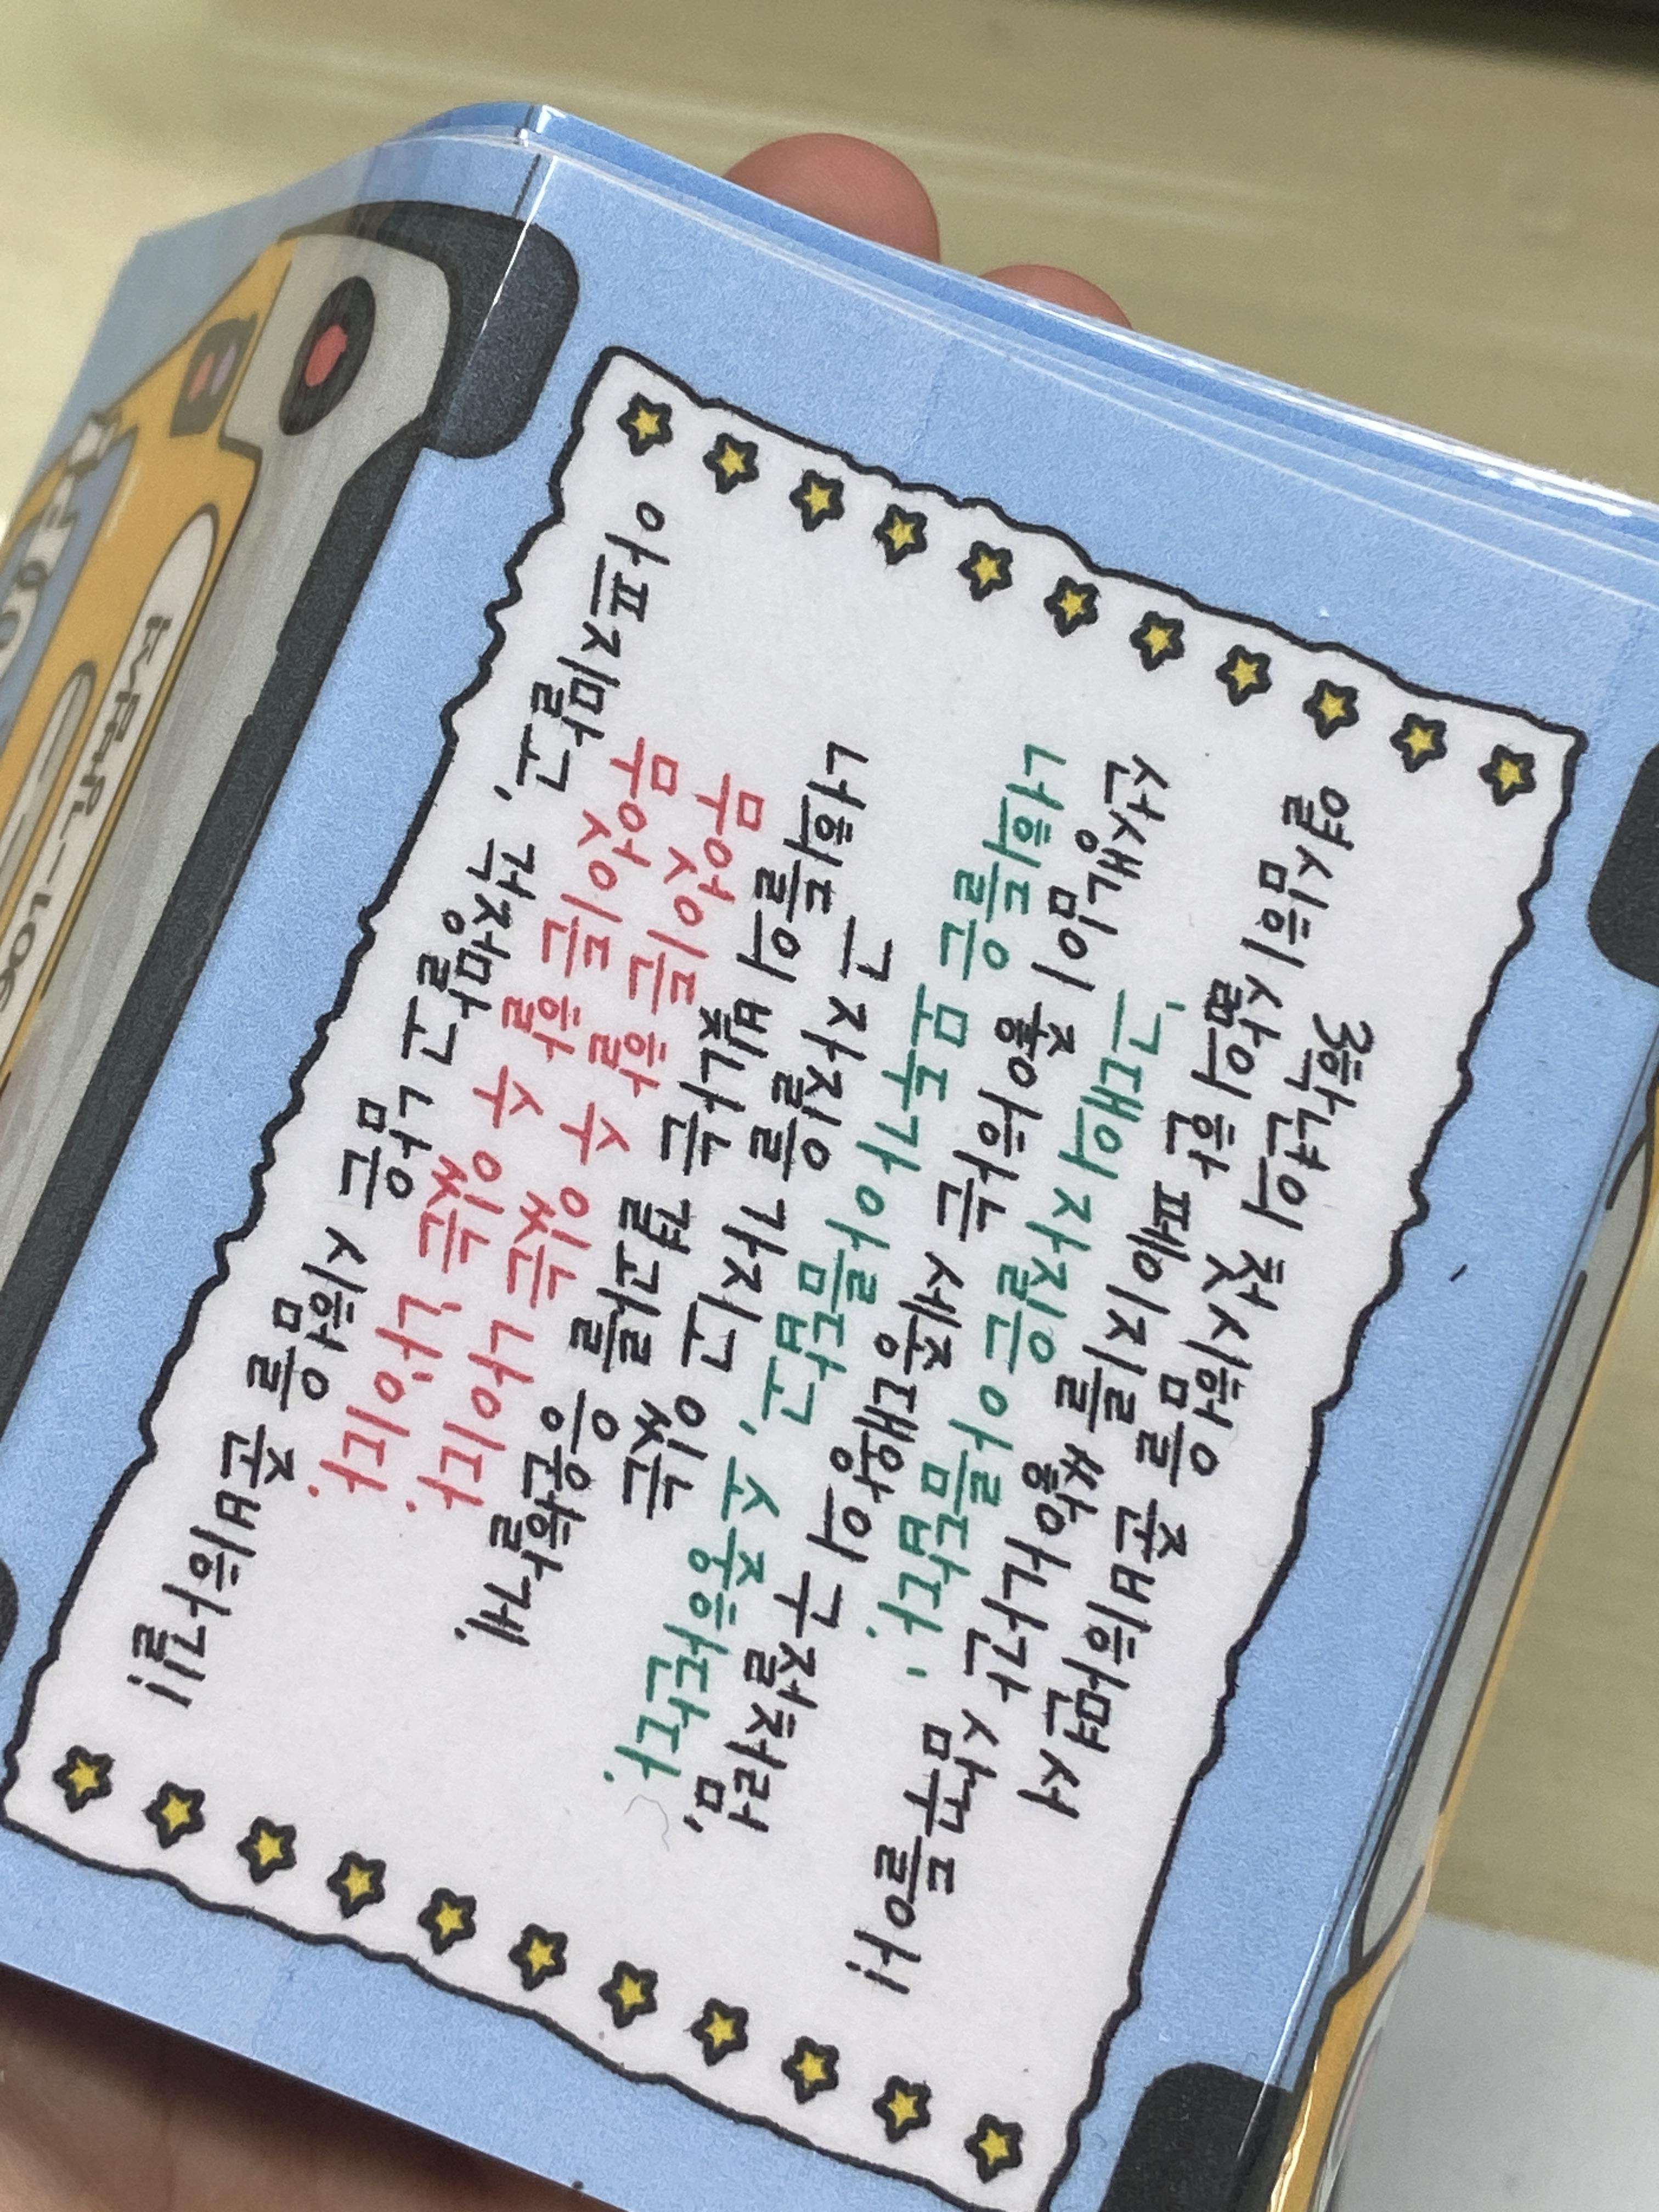 3학년의 첫시험을 준비하면서
열심히 삶의 한 페이지를 쌓아나간 삼꾸들아!
'그대의 자질은 아름답다.'
산생님이 좋아하는 세종대왕의 구절처럼,
너희들은 모두가 아름답고, 소중하단다.
그 자질을 가지고 있는
너희들의 빛나는 결과를 응원할게.
무엇이든 할 수 있는 나이다.
무엇이든 할 수 있는 나이다.
아프지말고, 걱정말고 남은 시험을 준비하길!!